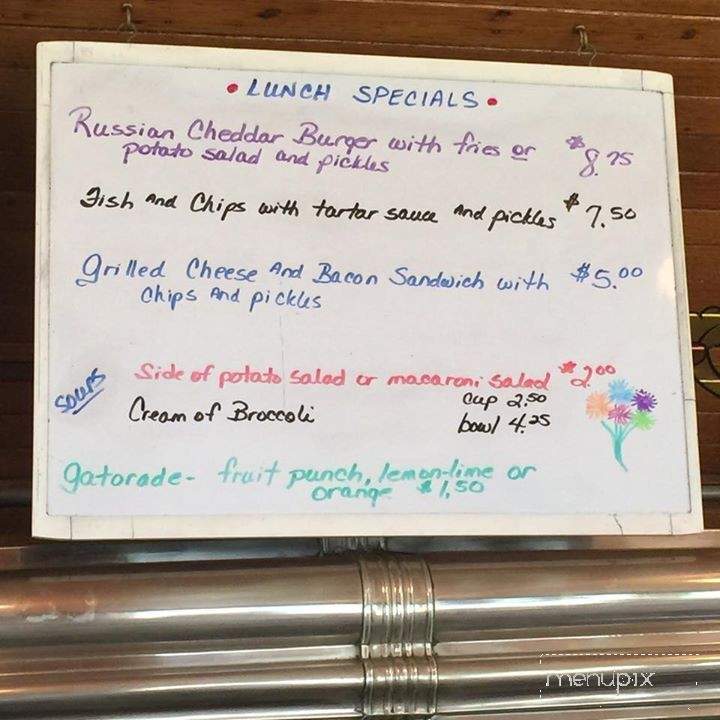 • LUNCH SPECIALS •
Russian Cheddar Burger with fries or $8.75
potato salad and pickles
Fish And Chips with tartar sauce And pickles $7.50
Grilled Cheese And Bacon Sandwich with $5.00
Chips And pickles
Side of potato salad or macaroni salad $2.00
Soups
Cream of Broccoli cup 2.50
bowl 4.25
gatorade- fruit punch, lemon-lime or
orange $1.50
menupix